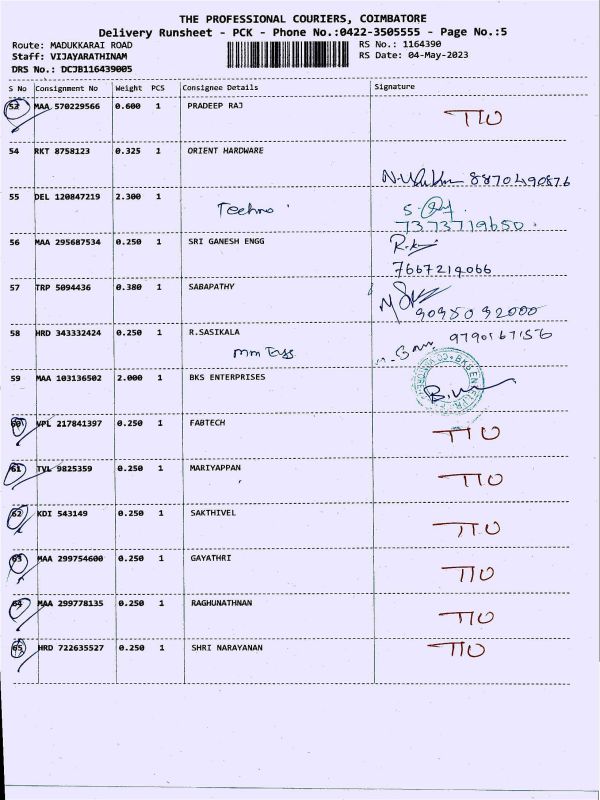 THE PROFESSIONAL COURIERS, COIMBATORE
Delivery Runsheet - PCK - Phone No.:0422-3505555 - Page No.:5
Route: MADUKKARAI ROAD RS No.: 1164390
Staff: VIJAYARATHINAM RS Date: 04-May-2023
DRS No.: DCJB116439005
S No Consignment No Weight PCS Consignee Details Signature
53 MAA 570229566 0.600 1 PRADEEP RAJ TTO
54 RKT 8758123 0.325 1 ORIENT HARDWARE
8870490876
55 DEL 120847219 2.300 1
Techno
7373719650
56 MAA 295687534 0.250 1 SRI GANESH ENGG
7667214066
57 TRP 5094436 0.380 1 SABAPATHY
9095092000
58 HRD 343332424 0.250 1 R.SASIKALA 9790167156
59 MAA 103136502 2.000 1 BKS ENTERPRISES
60 VPL 217841397 0.250 1 FABTECH TTO
61 TVL 9825359 0.250 1 MARIYAPPAN TTO
62 KDI 543149 0.250 1 SAKTHIVEL TTO
63 MAA 299754600 0.250 1 GAYATHRI TTO
64 MAA 299778135 0.250 1 RAGHUNATHNAN TTO
65 HRD 722635527 0.250 1 SHRI NARAYANAN TTO